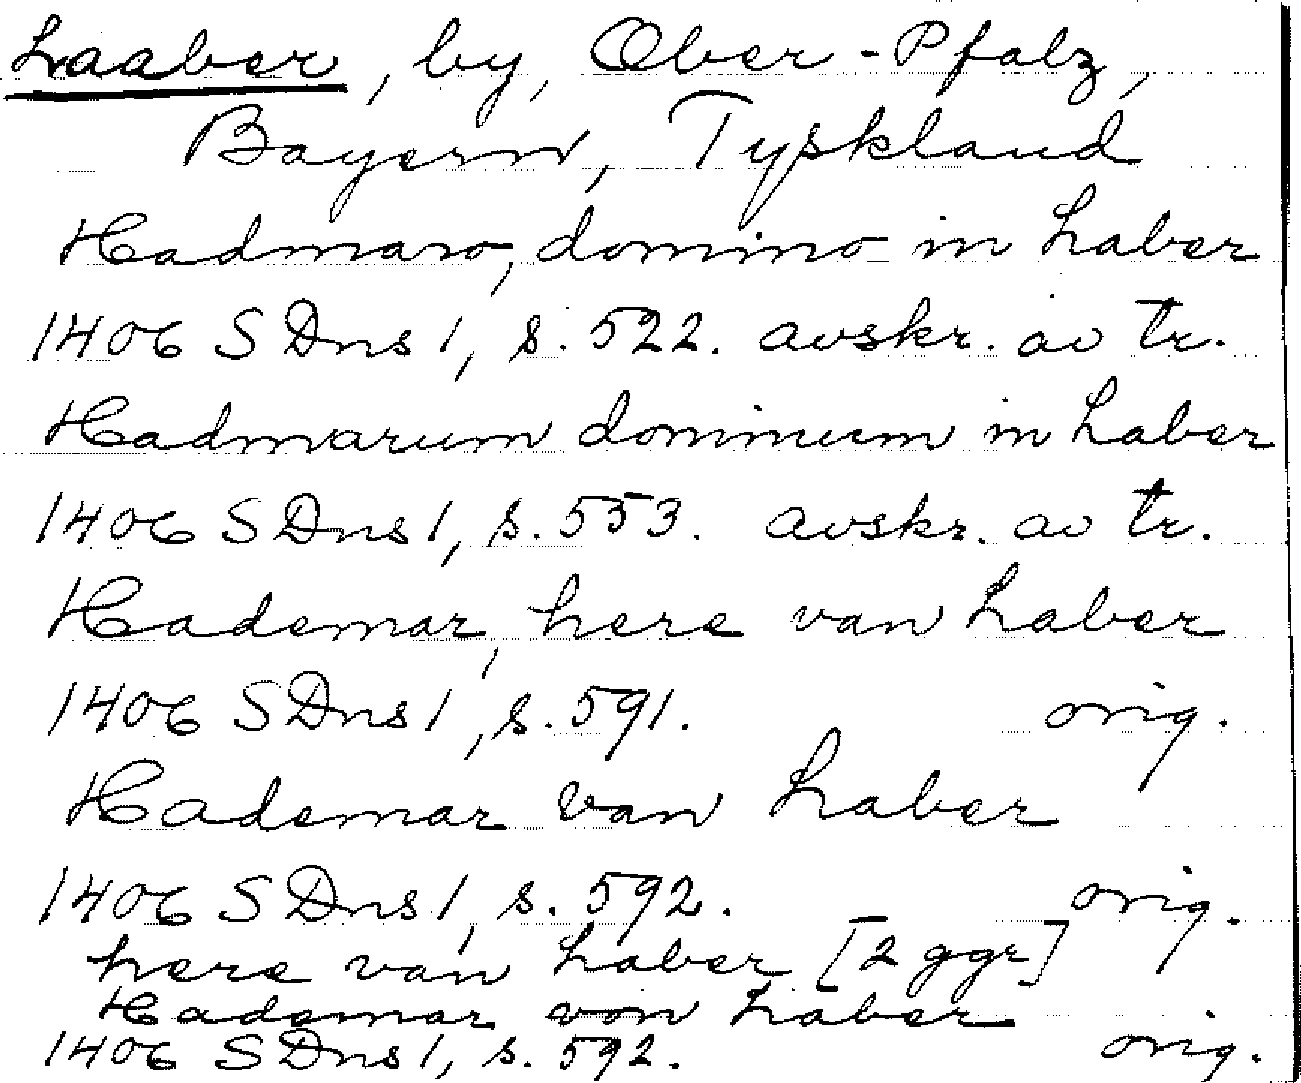 Laaber, by, Ober-Pfalz,
Bayern, Tyskland
Hadmaro, domino in Laber
1406 SDns 1, s. 522. avskr. av tr.
Hadmarum dominum in Laber
1406 SDns 1, s. 553. avskr. av tr.
Hademar, here van Laber
1406 SDns 1, s. 591. orig.
Hademar van Laber
1406 SDns 1, s. 592. orig.
here van Laber [2 ggr]
Hademar von Laber
1406 SDns 1, s. 592. orig.